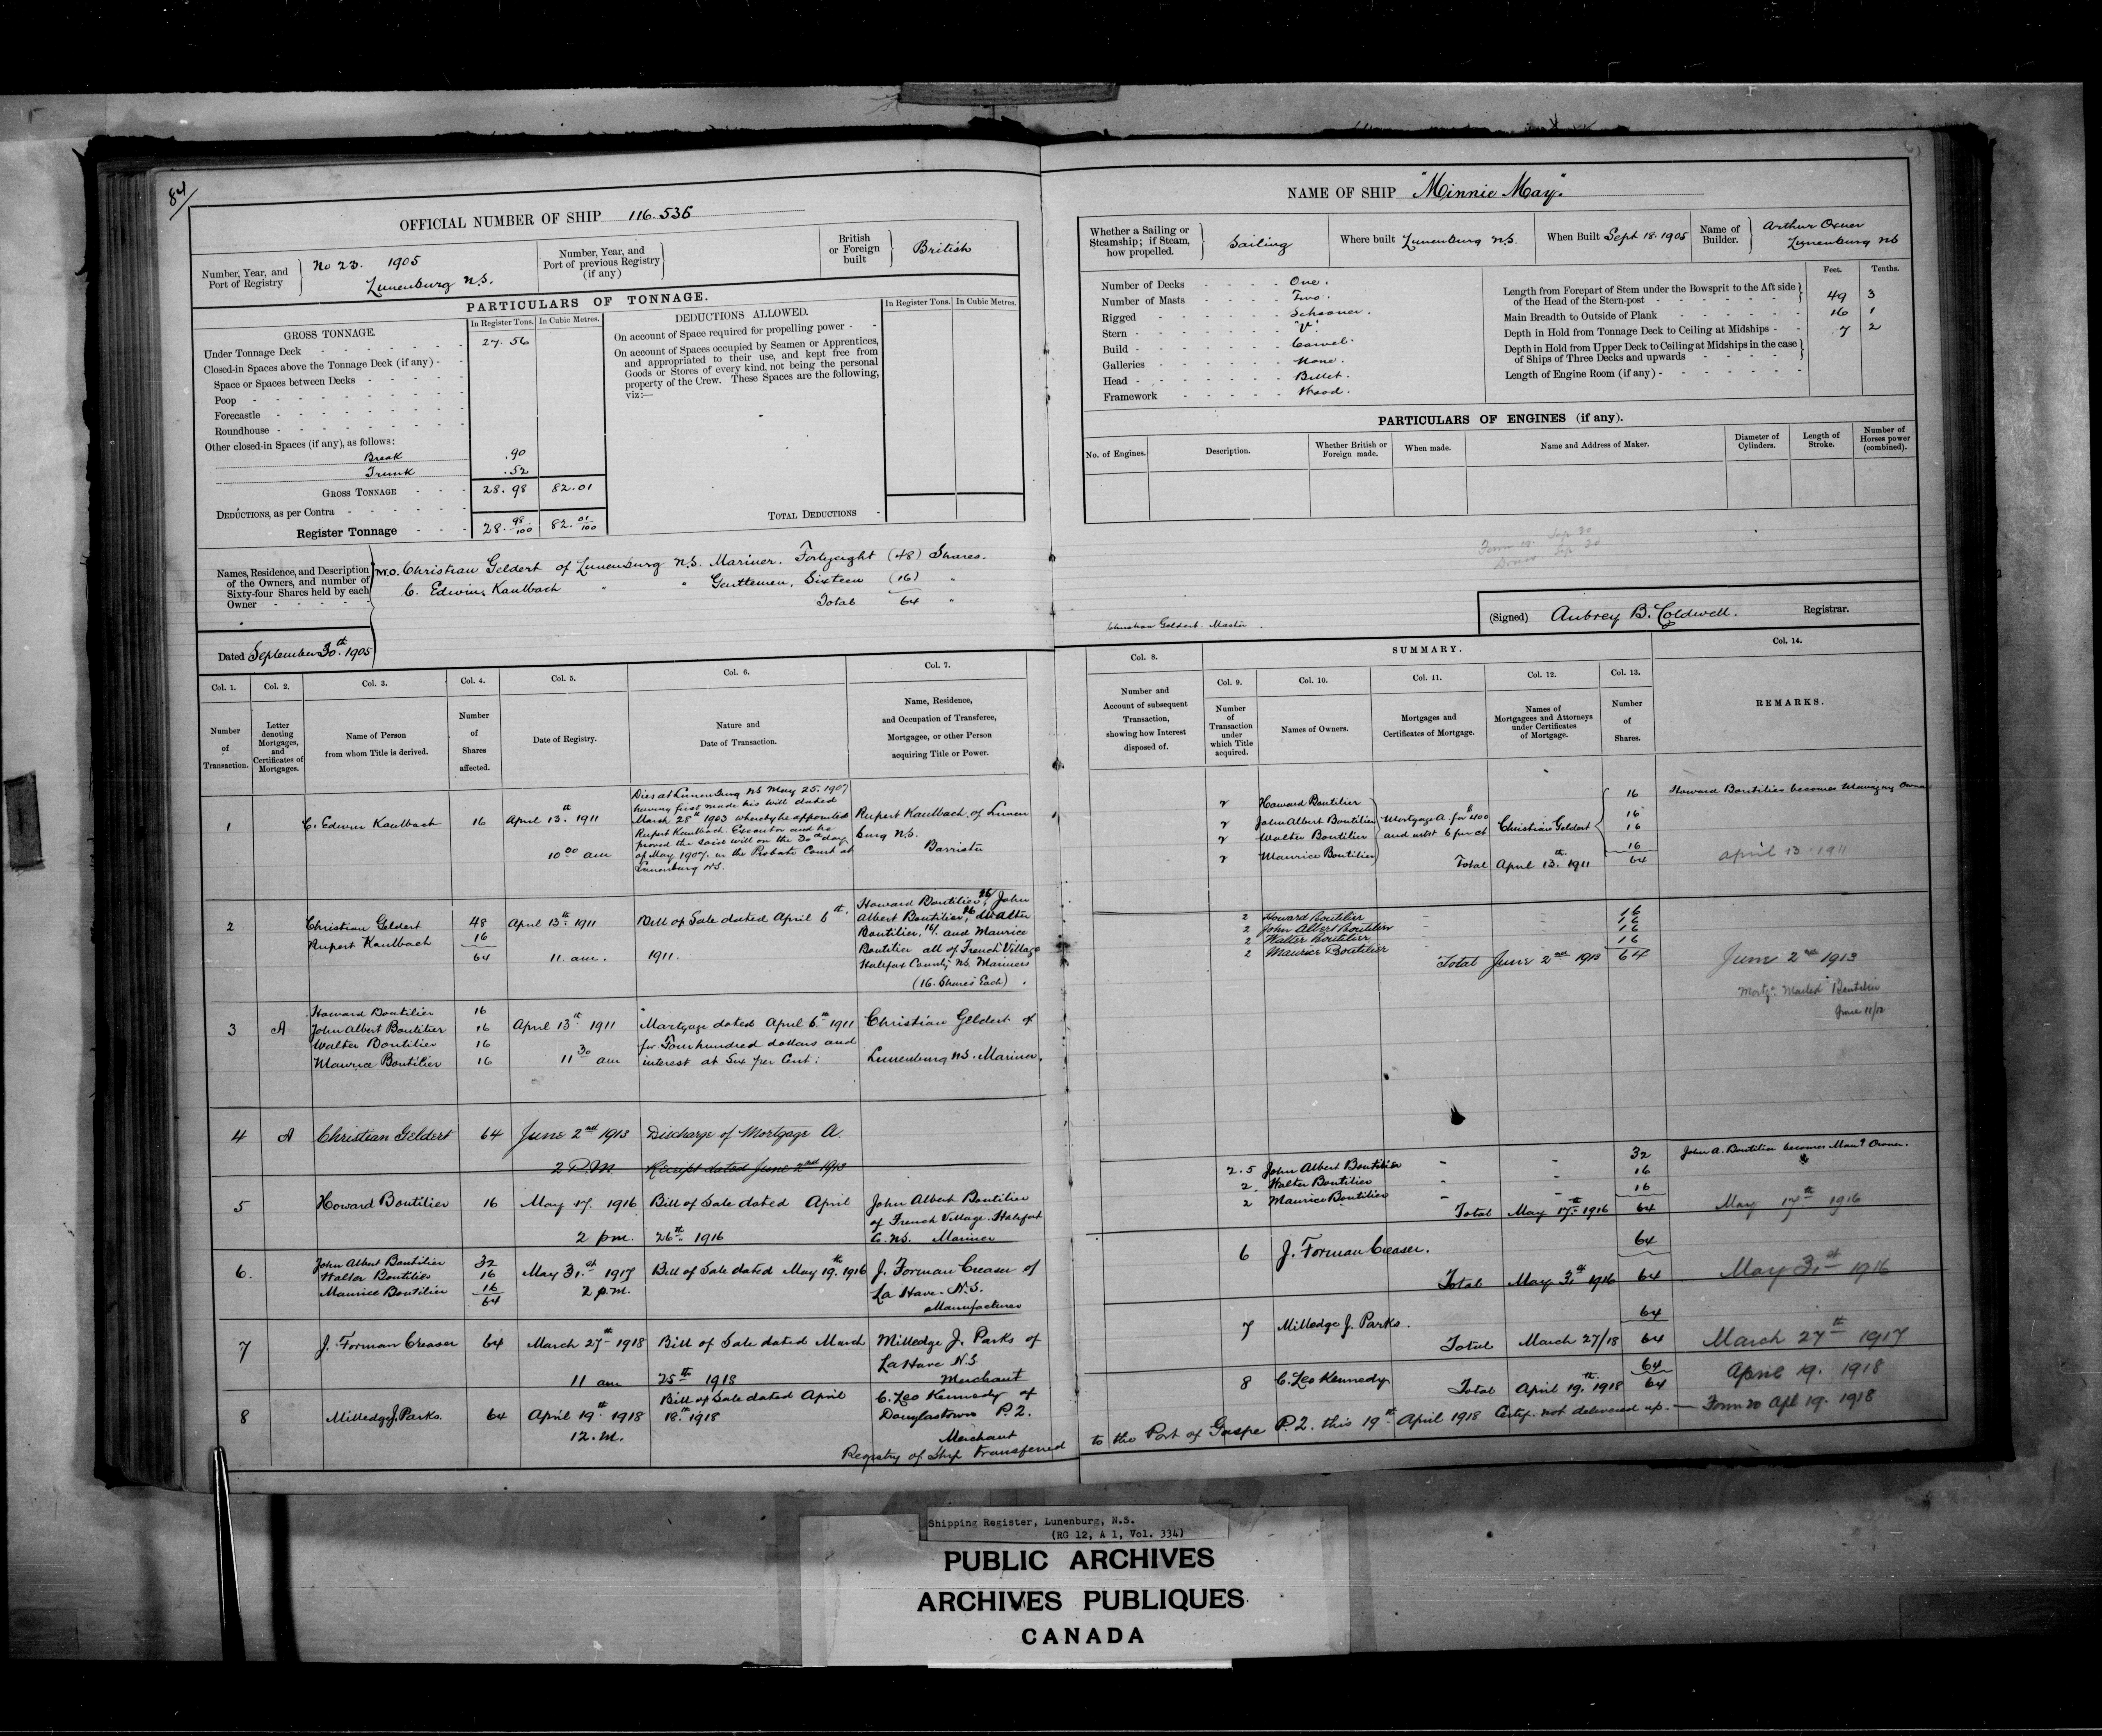 84
OFFICIAL NUMBER OF SHIP 116.535
Number, Year, and Port of Registry
No 23. 1905
Lunenburg N.S.
Number, Year, and Port of previous Registry (if any)
British or Foreign built
British
PARTICULARS OF TONNAGE.
GROSS TONNAGE.
In Register Tons.
In Cubic Metres.
Under Tonnage Deck 27.56
Closed-in Spaces above the Tonnage Deck (if any) -
Space or Spaces between Decks
Poop
Forecastle
Roundhouse
Other closed-in Spaces (if any), as follows:
Break .90
Trunk .52
GROSS TONNAGE 28.98 82.01
DEDUCTIONS, as per Contra
Register Tonnage 28.98/100 82.01/100
DEDUCTIONS ALLOWED.
In Register Tons. In Cubic Metres.
On account of Space required for propelling power -
On account of Spaces occupied by Seamen or Apprentices,
and appropriated to their use, and kept free from
Goods or Stores of every kind, not being the personal
property of the Crew. These Spaces are the following,
viz:—
TOTAL DEDUCTIONS -
Names, Residence, and Description
of the Owners, and number of
Sixty-four Shares held by each
Owner
M.O. Christian Geldert of Lunenburg N.S. Mariner. Fortyeight (48) Shares.
C. Edwin Kaulbach " " Gentlemen, Sixteen (16) "
Total 64 "
Dated September 30th 1905
NAME OF SHIP "Minnie May".
Whether a Sailing or Steamship; if Steam, how propelled.
Sailing
Where built Lunenburg N.S.
When Built Sept 18. 1905
Name of Builder.
Arthur Oxner
Lunenburg NS
Number of Decks One.
Number of Masts Two.
Rigged Schooner.
Stern "V".
Build Carvel.
Galleries None.
Head Billet.
Framework Wood.
Feet. Tenths.
Length from Forepart of Stem under the Bowsprit to the Aft side
of the Head of the Stern-post 49 3
Main Breadth to Outside of Plank 16 1
Depth in Hold from Tonnage Deck to Ceiling at Midships 7 2
Depth in Hold from Upper Deck to Ceiling at Midships in the case
of Ships of Three Decks and upwards
Length of Engine Room (if any)
PARTICULARS OF ENGINES (if any).
No. of Engines.
Description.
Whether British or Foreign made.
When made.
Name and Address of Maker.
Diameter of Cylinders.
Length of Stroke.
Number of Horses power (combined).
Sep 30
Sep 30
Christian Geldert Master.
(Signed) Aubrey B. Coldwell. Registrar.
Col. 1. Col. 2. Col. 3. Col. 4. Col. 5. Col. 6. Col. 7.
Number of Transaction.
Letter denoting Mortgages, and Certificates of Mortgages.
Name of Person from whom Title is derived.
Number of Shares affected.
Date of Registry.
Nature and Date of Transaction.
Name, Residence, and Occupation of Transferee, Mortgagee, or other Person acquiring Title or Power.
1 C. Edwin Kaulbach 16 April 13th 1911
10 30 am
Dies at Lunenburg NS May 25. 1907
having first made his will dated
March 28th 1903 whereby he appointed
Rupert Kaulbach Executor and he
proved the said will on the 30th day
of May 1907. in the Probate Court at
Lunenburg N.S.
Rupert Kaulbach. of Lunen
burg N.S.
Barrister
2 Christian Geldert 48 April 13th 1911
Rupert Kaulbach 16
64 11. am.
Bill of Sale dated April 6th
1911.
Howard Boutilier, 16/ John
Albert Boutilier, 16 Walter
Boutilier, 16/ and Maurice
Boutilier all of French Village
Halifax County NS. Mariners
(16. Shares Each).
3 A Howard Boutilier 16
John Albert Boutilier 16 April 13th 1911
Walter Boutilier 16
Maurice Boutilier 16 11 30 am
Mortgage dated April 6th 1911
for Fourhundred dollars and
interest at Six per Cent:
Christian Geldert of
Lunenburg N.S. Mariner.
4 A Christian Geldert 64 June 2nd 1913 Discharge of Mortgage A.
2 P.M. Receipt dated June 2nd 1913
5 Howard Boutilier 16 May 17. 1916 Bill of Sale dated April
2 pm. 26th 1916
John Albert Boutilier
of French Village. Halifax
Co. N.S. Mariner
6. John Albert Boutilier 32
Walter Boutilier 16
Maurice Boutilier 16
64
May 31st 1917
2 p.m.
Bill of Sale dated May 19th 1916
J. Forman Creaser of
La Have. N.S.
Manufacturer
7 J. Forman Creaser 64 March 27th 1918 Bill of Sale dated March
11 am 25th 1918
Milledge J. Parks of
LaHave N.S
Merchant
8 Milledge J. Parks. 64 April 19th 1918
12. M.
Bill of Sale dated April
18th 1918
C. Leo Kennedy of
Douglastown P.2.
Merchant
Registry of Ship transferred
to the Port of Gaspe P.2. this 19th April 1918 Certif. not delivered up. — Form 20 Apl 19. 1918
Col. 8.
SUMMARY.
Col. 9. Col. 10. Col. 11. Col. 12. Col. 13. Col. 14.
Number and Account of subsequent Transaction, showing how Interest disposed of.
Number of Transaction under which Title acquired.
Names of Owners.
Mortgages and Certificates of Mortgage.
Names of Mortgagees and Attorneys under Certificates of Mortgage.
Number of Shares.
REMARKS.
2 Howard Boutilier 16 Howard Boutilier becomes Managing Owner
2 John Albert Boutilier Mortgage A. for $400 16
2 Walter Boutilier and intst 6 per ct Christian Geldert 16
2 Maurice Boutilier 16
Total April 13th 1911 64 April 13 1911
2 Howard Boutilier 16
2 John Albert Boutilier 16
2 Walter Boutilier 16
2 Maurice Boutilier 16
Total June 2nd 1913 64 June 2nd 1913
Mortg. Mailed Boutilier
June 11/13
2.5 John Albert Boutilier 32 John A. Boutilier becomes Mang Owner.
2. Walter Boutilier 16
2 Maurice Boutilier 16
Total May 17th 1916 64 May 17th 1916
6 J. Forman Creaser. 64
Total May 31st 1916 64 May 31st 1916
7 Milledge J. Parks. 64
Total March 27/18 64 March 27th 1917
8 C. Leo Kennedy 64
Total April 19th 1918 64 April 19. 1918
Shipping Register, Lunenburg, N.S.
(RG 12, A 1, Vol. 334)
PUBLIC ARCHIVES
ARCHIVES PUBLIQUES
CANADA